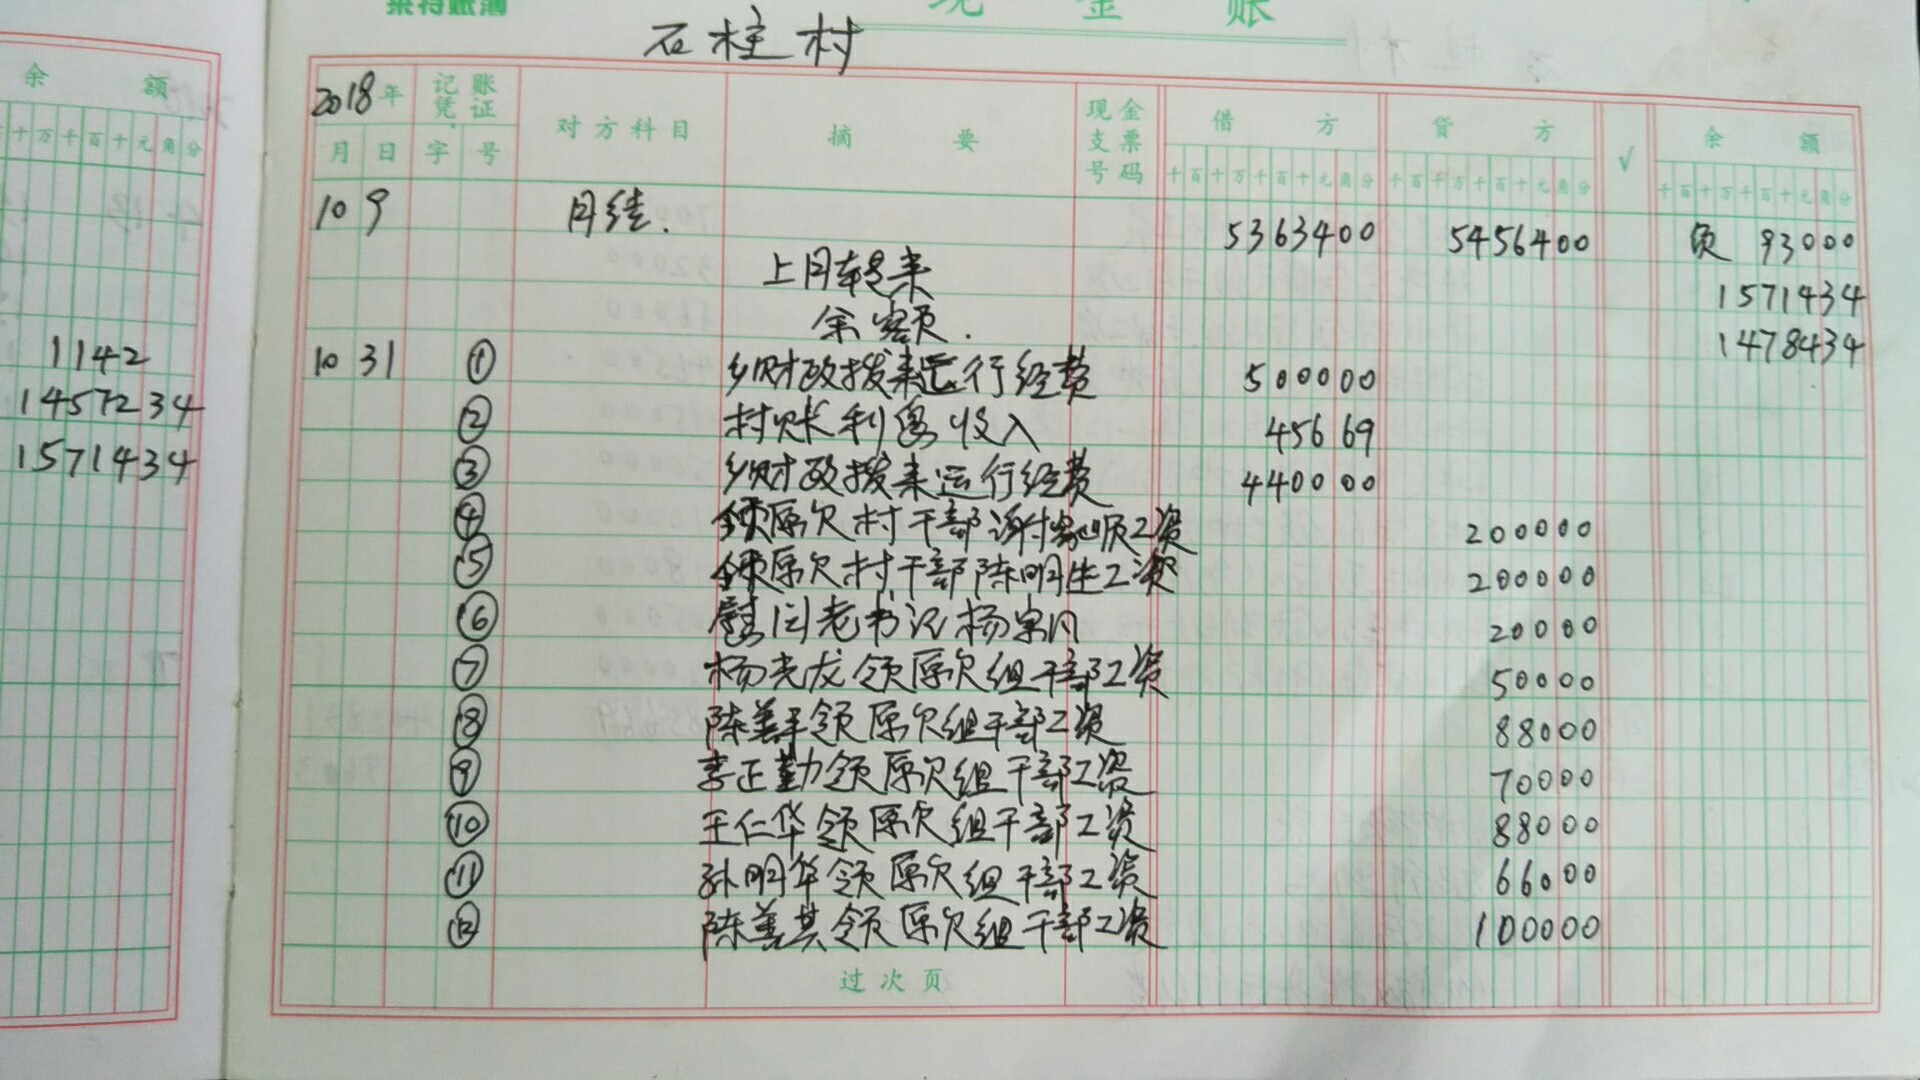 现 金 账
石柱村
余 额
十万千百十元角分
1142
1457234
1571434
2018年 记账凭证 对方科目 摘 要 现金支票号码 借 方 贷 方 √ 余 额
月 日 字 号 千百十万千百十元角分 千百十万千百十元角分 千百十万千百十元角分
10 9 月结. 5363400 5456400 负 93000
上月转来 1571434
余额. 1478434
10 31 ① 乡财政拨来运行经费 500000
② 村账利息收入 45669
③ 乡财政拨来运行经费 440000
④ 领原欠村干部谢 顺工资 200000
⑤ 领原欠村干部陈明生工资 200000
⑥ 慰问老书记杨 月 20000
⑦ 杨光龙领原欠组干部工资 50000
⑧ 陈善平领原欠组干部工资 88000
⑨ 李正勤领原欠组干部工资 70000
⑩ 王仁华领原欠组干部工资 88000
⑪ 孙明华领原欠组干部工资 66000
⑫ 陈善其领原欠组干部工资 100000
过次页